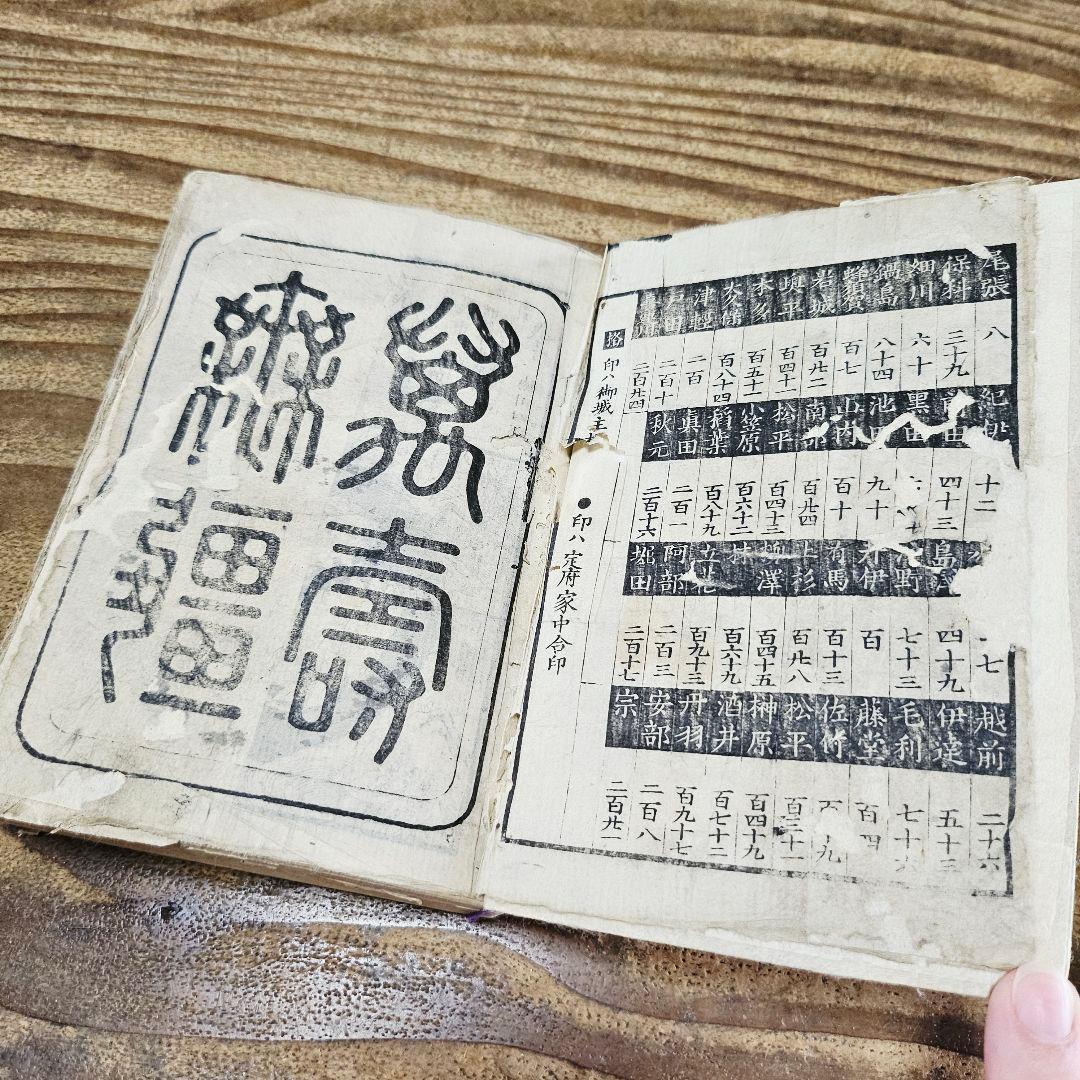 尾張 八 紀伊 十二 七 越前 二十六
保科 三十九 前田 四十三 島津 四十九 伊達 五十三
細川 六十 黒田 野 七十三 毛利 七十六
鍋島 八十四 池田 九十 井伊 百 藤堂 百四
蜂須賀 百七 山内 百十 有馬 百十三 佐竹 十九
岩城 百廿二 南部 百廿四 上杉 百廿八 松平 百三十一
奥平 百四十一 松平 百四十三 柳澤 百四十五 榊原 百四十九
本多 百五十一 小笠原 百六十二 百六十九 酒井 百七十二
大久保 百八十四 稻葉 百八十九 立花 百九十三 丹羽 百九十七
津輕 二百 眞田 二百一 阿部 二百三 安部 二百八
戸田 二百十 秋元 二百十六 堀田 二百十七 宗 二百廿一
二百廿四
印ハ御城主 ●印ハ定府家中合印
萬壽
無疆